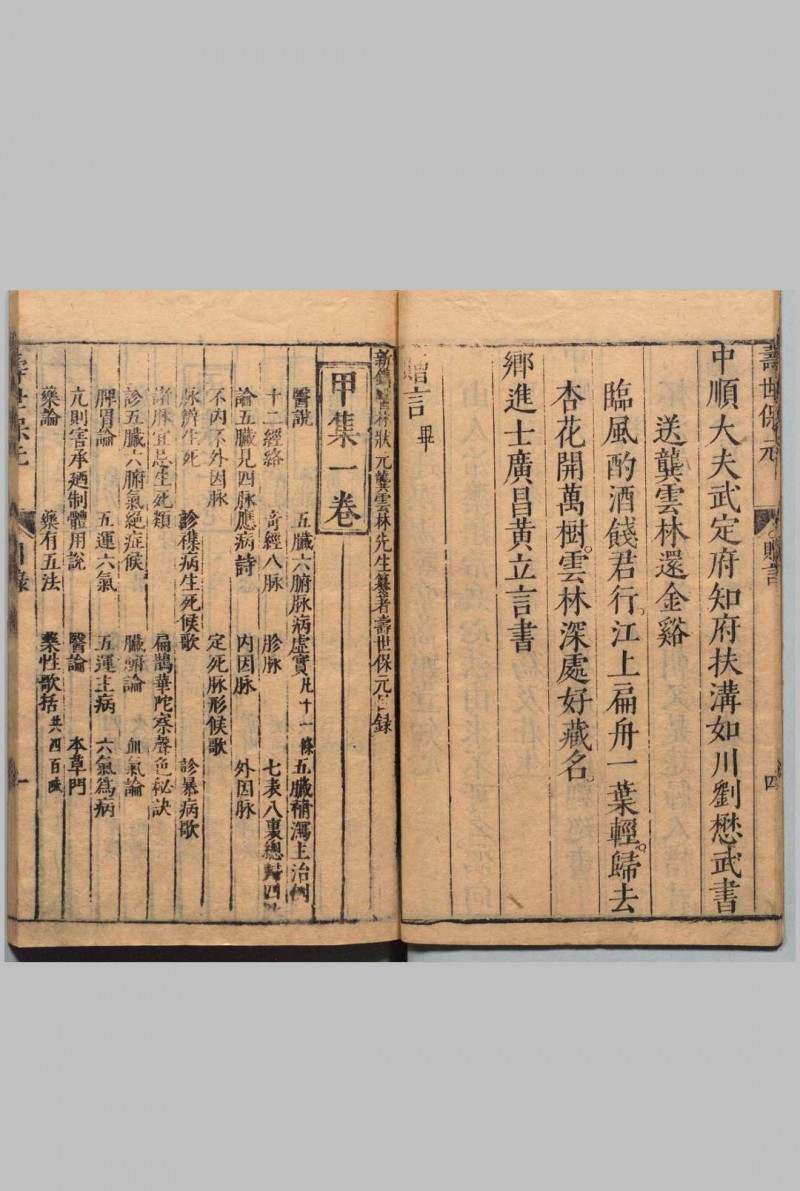 壽世保元
贈言
四
中順大夫武定府知府扶溝如川劉懋武書
送龔雲林還金谿
臨風酌酒餞君行江上扁舟一葉輕歸去
杏花開萬樹雲林深處好藏名
鄉進士廣昌黃立言書
贈言畢
新鐫醫林狀元龔雲林先生纂著壽世保元目錄
甲集一卷
醫說 五臟六腑脉病虛實凡十一條 五臟補瀉主治例
十二經絡 奇經八脉 胗脉 七表八裏總歸四
論五臟見四脉應病詩 內因脉 外因脉
不內不外因脉 定死脉形候歌
脉辨生死 診雜病生死候歌 診暴病歌
諸脉宜忌生死類 扁鵲華陀察聲色秘訣
診五臟六腑氣絕症候 臟腑論 血氣論
脾胃論 五運六氣 五運主病 六氣爲病
亢則害承廼制體用說 醫論 本草門
藥論 藥有五法 藥性歌括共四百
壽世保元
目錄
一